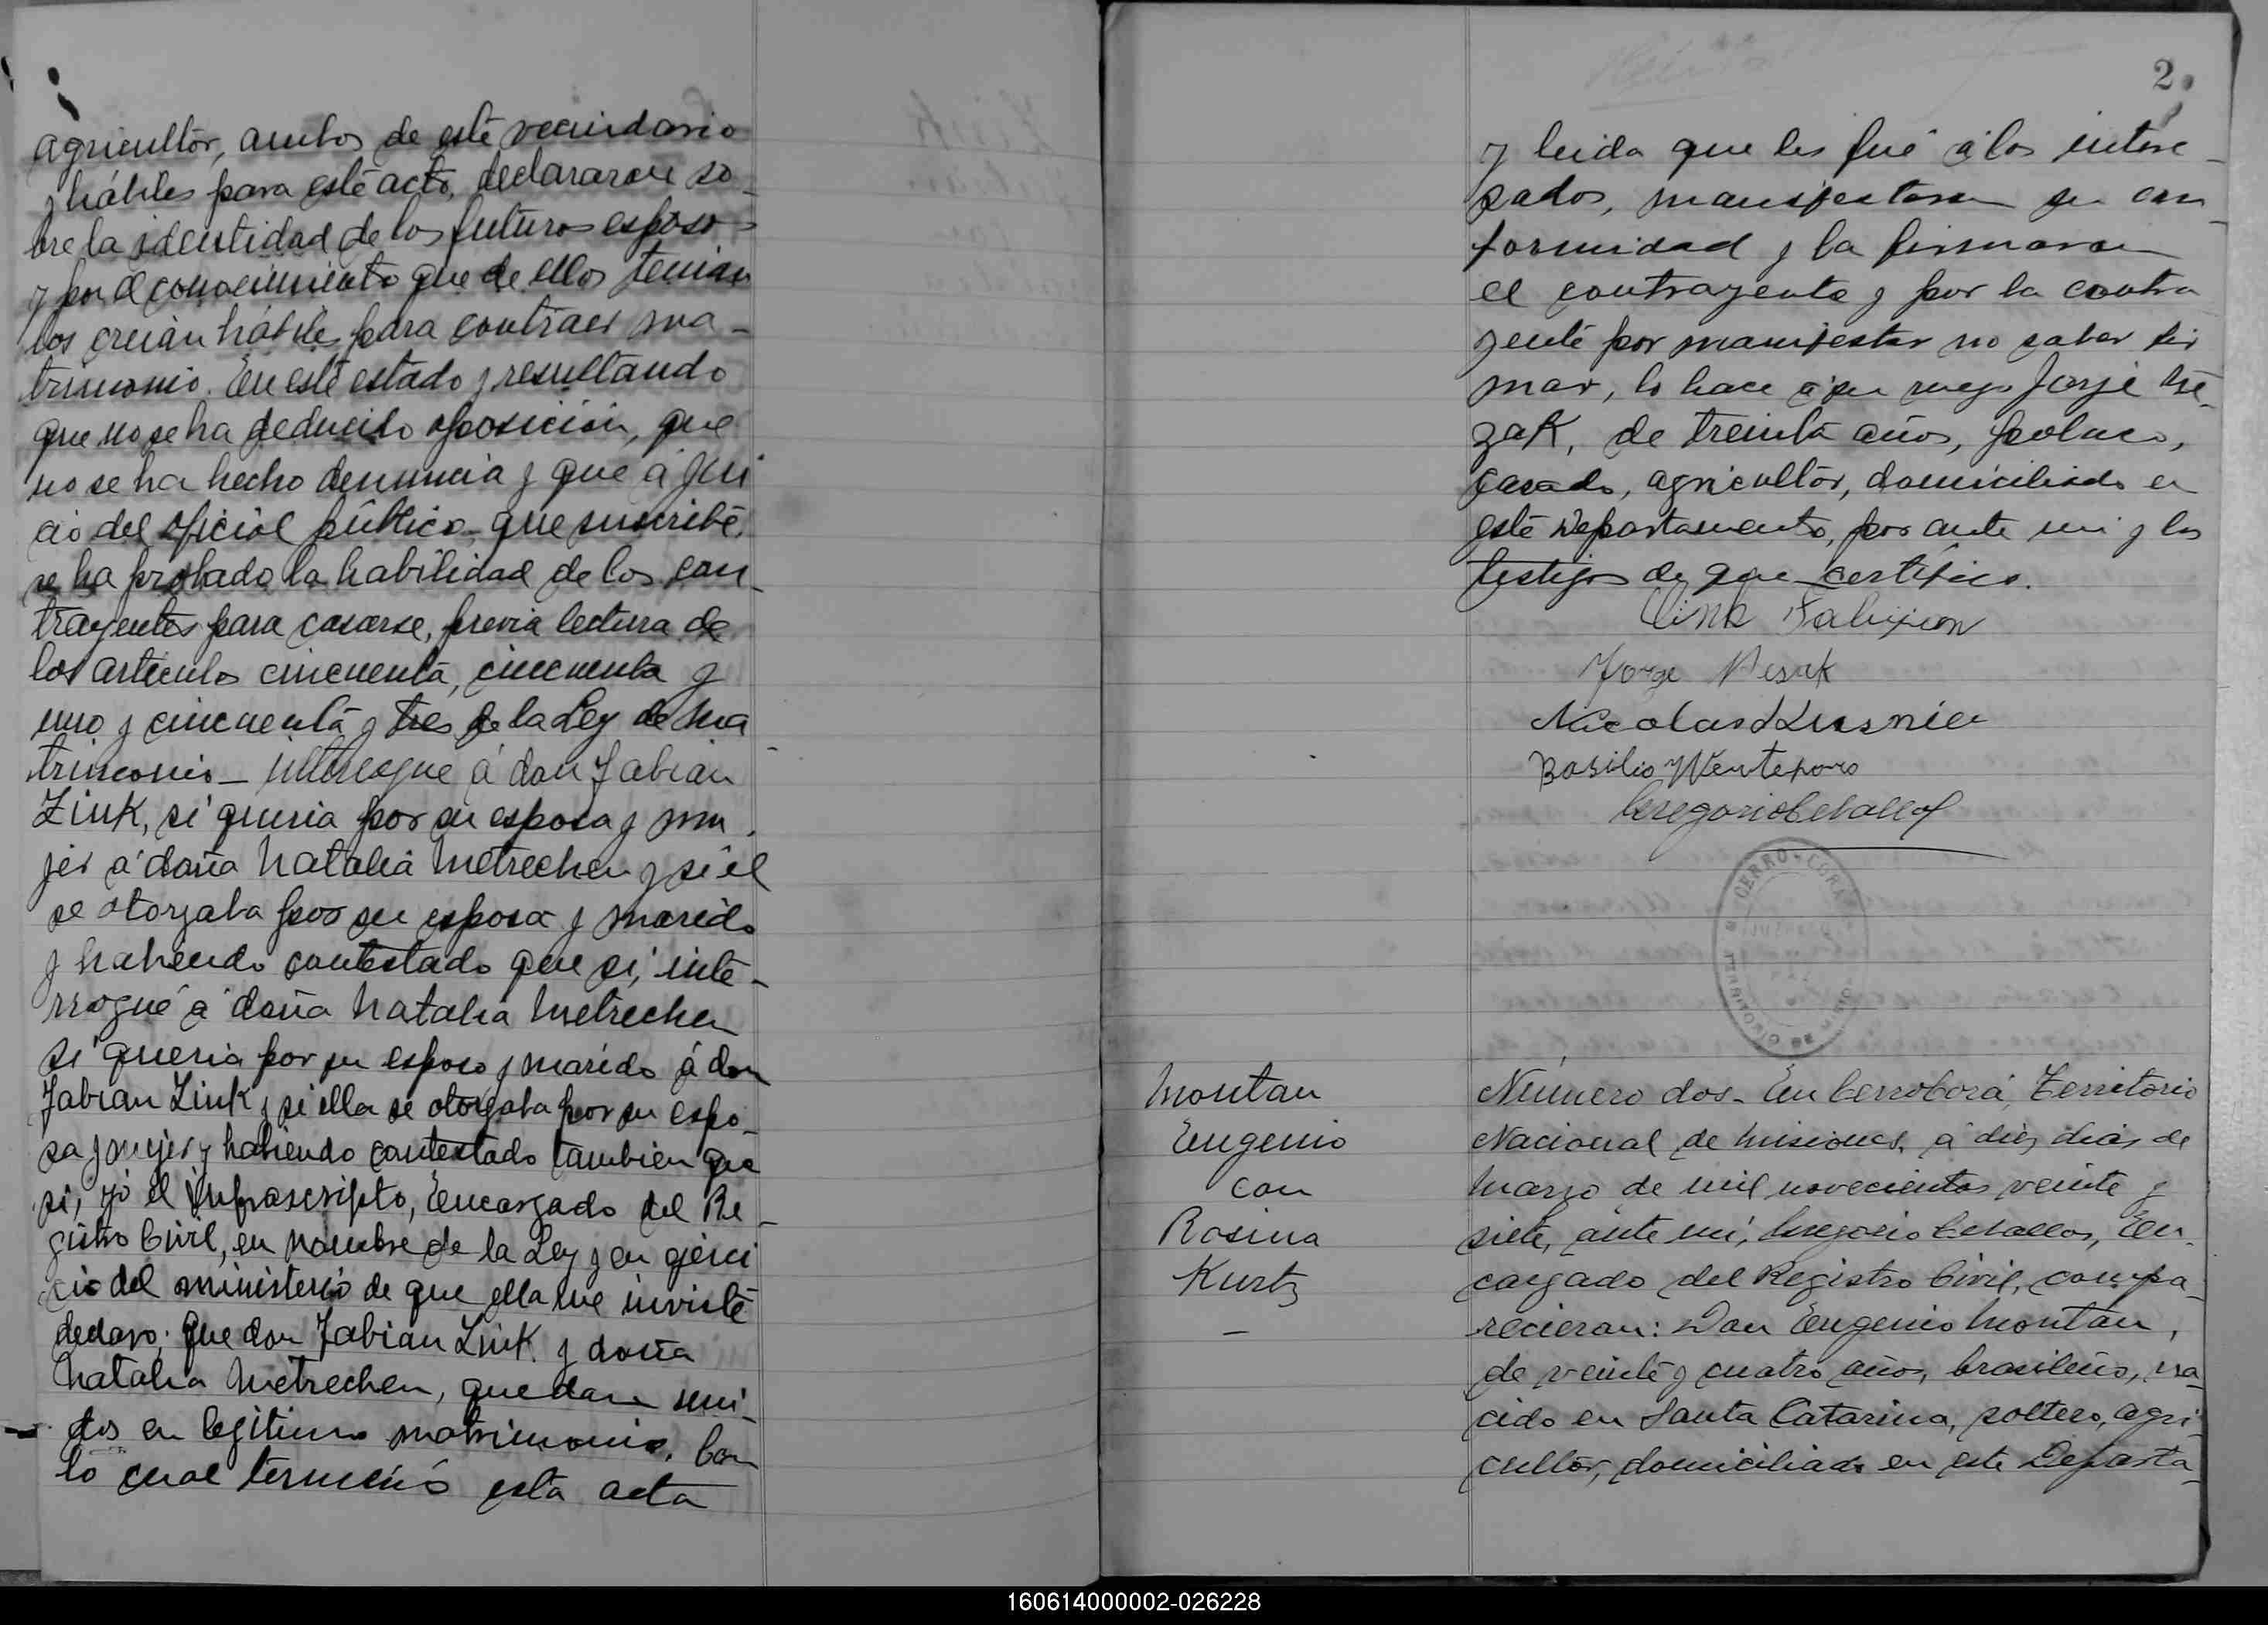 agricultor, ambos de este vecindario
y hábiles para este acto, declararon so-
bre la identidad de los futuros esposos
y por el conocimiento que de ellos tenian
los creian hábiles para contraer ma-
trimonio. En este estado y resultando
que no se ha deducido oposición, que
no se ha hecho denuncia y que á jui
cio del oficial público que suscribe,
se ha probado la habilidad de los con-
trayentes para casarse, previa lectura de
los articulos cincuenta, cincuenta y
uno y cincuenta y tres de la Ley de Ma
trimonio - interrogue á don Fabian
Zink, si queria por su esposa y mu
jer á doña Natalia Metrechen y si él
se otorgaba por su esposo y marido
y habiendo contestado que si, inte-
rrogué á doña Natalia Metrechen
si queria por su esposo y marido á don
Fabian Zink y si ella se otorgaba por su espo-
sa y mujer y habiendo contestado tambien que
si, yo el infrascripto, Encargado del Re-
gistro Civil, en nombre de la Ley y en ejerci
cio del ministerio de que ella me inviste
declaro: que don Fabian Zink y doña
Natalia Metrechen, quedan uni-
dos en legitimo matrimonio. Con
lo cual terminó esta acta
2
y leida que les fué á los intere-
sados, manifestaron su con-
formidad y la firmaron
el contrayente y por la contra
yente por manifestar no saber fir
mar, lo hace á su ruego Jorje
zak, de treinta años, polaco,
casado, agricultor, domiciliado en
este Departamento, por ante mi y los
testigos de que certifico.
Zink Fabijion
Jorge
Nicolas Kusnier
Basilio
Gregorio Ceballos
CERRO-CORA
TERRITORIO DE MISIONES
Montan
Eugenio
con
Rosina
Kurtz
Número dos - En Cerro Corá, Territorio
Nacional de Misiones, á diez dias de
Marzo de mil novecientos veinte y
siete, ante mi, Gregorio Ceballos, En-
cargado del Registro Civil, compa-
recieron: Don Eugenio Montan,
de veinte y cuatro años, brasileño, na-
cido en Santa Catarina, soltero, agri-
cultor, domiciliado en este Departa-
160614000002-026228